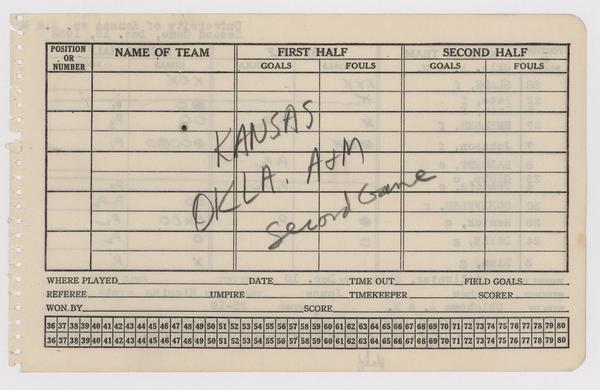 POSITION OR NUMBER NAME OF TEAM FIRST HALF SECOND HALF
GOALS FOULS GOALS FOULS
KANSAS
OKLA. A+M
Second Game
WHERE PLAYED DATE TIME OUT FIELD GOALS
REFEREE UMPIRE TIMEKEEPER SCORER
WON BY SCORE
36 37 38 39 40 41 42 43 44 45 46 47 48 49 50 51 52 53 54 55 56 57 58 59 60 61 62 63 64 65 66 67 68 69 70 71 72 73 74 75 76 77 78 79 80
36 37 38 39 40 41 42 43 44 45 46 47 48 49 50 51 52 53 54 55 56 57 58 59 60 61 62 63 64 65 66 67 68 69 70 71 72 73 74 75 76 77 78 79 80